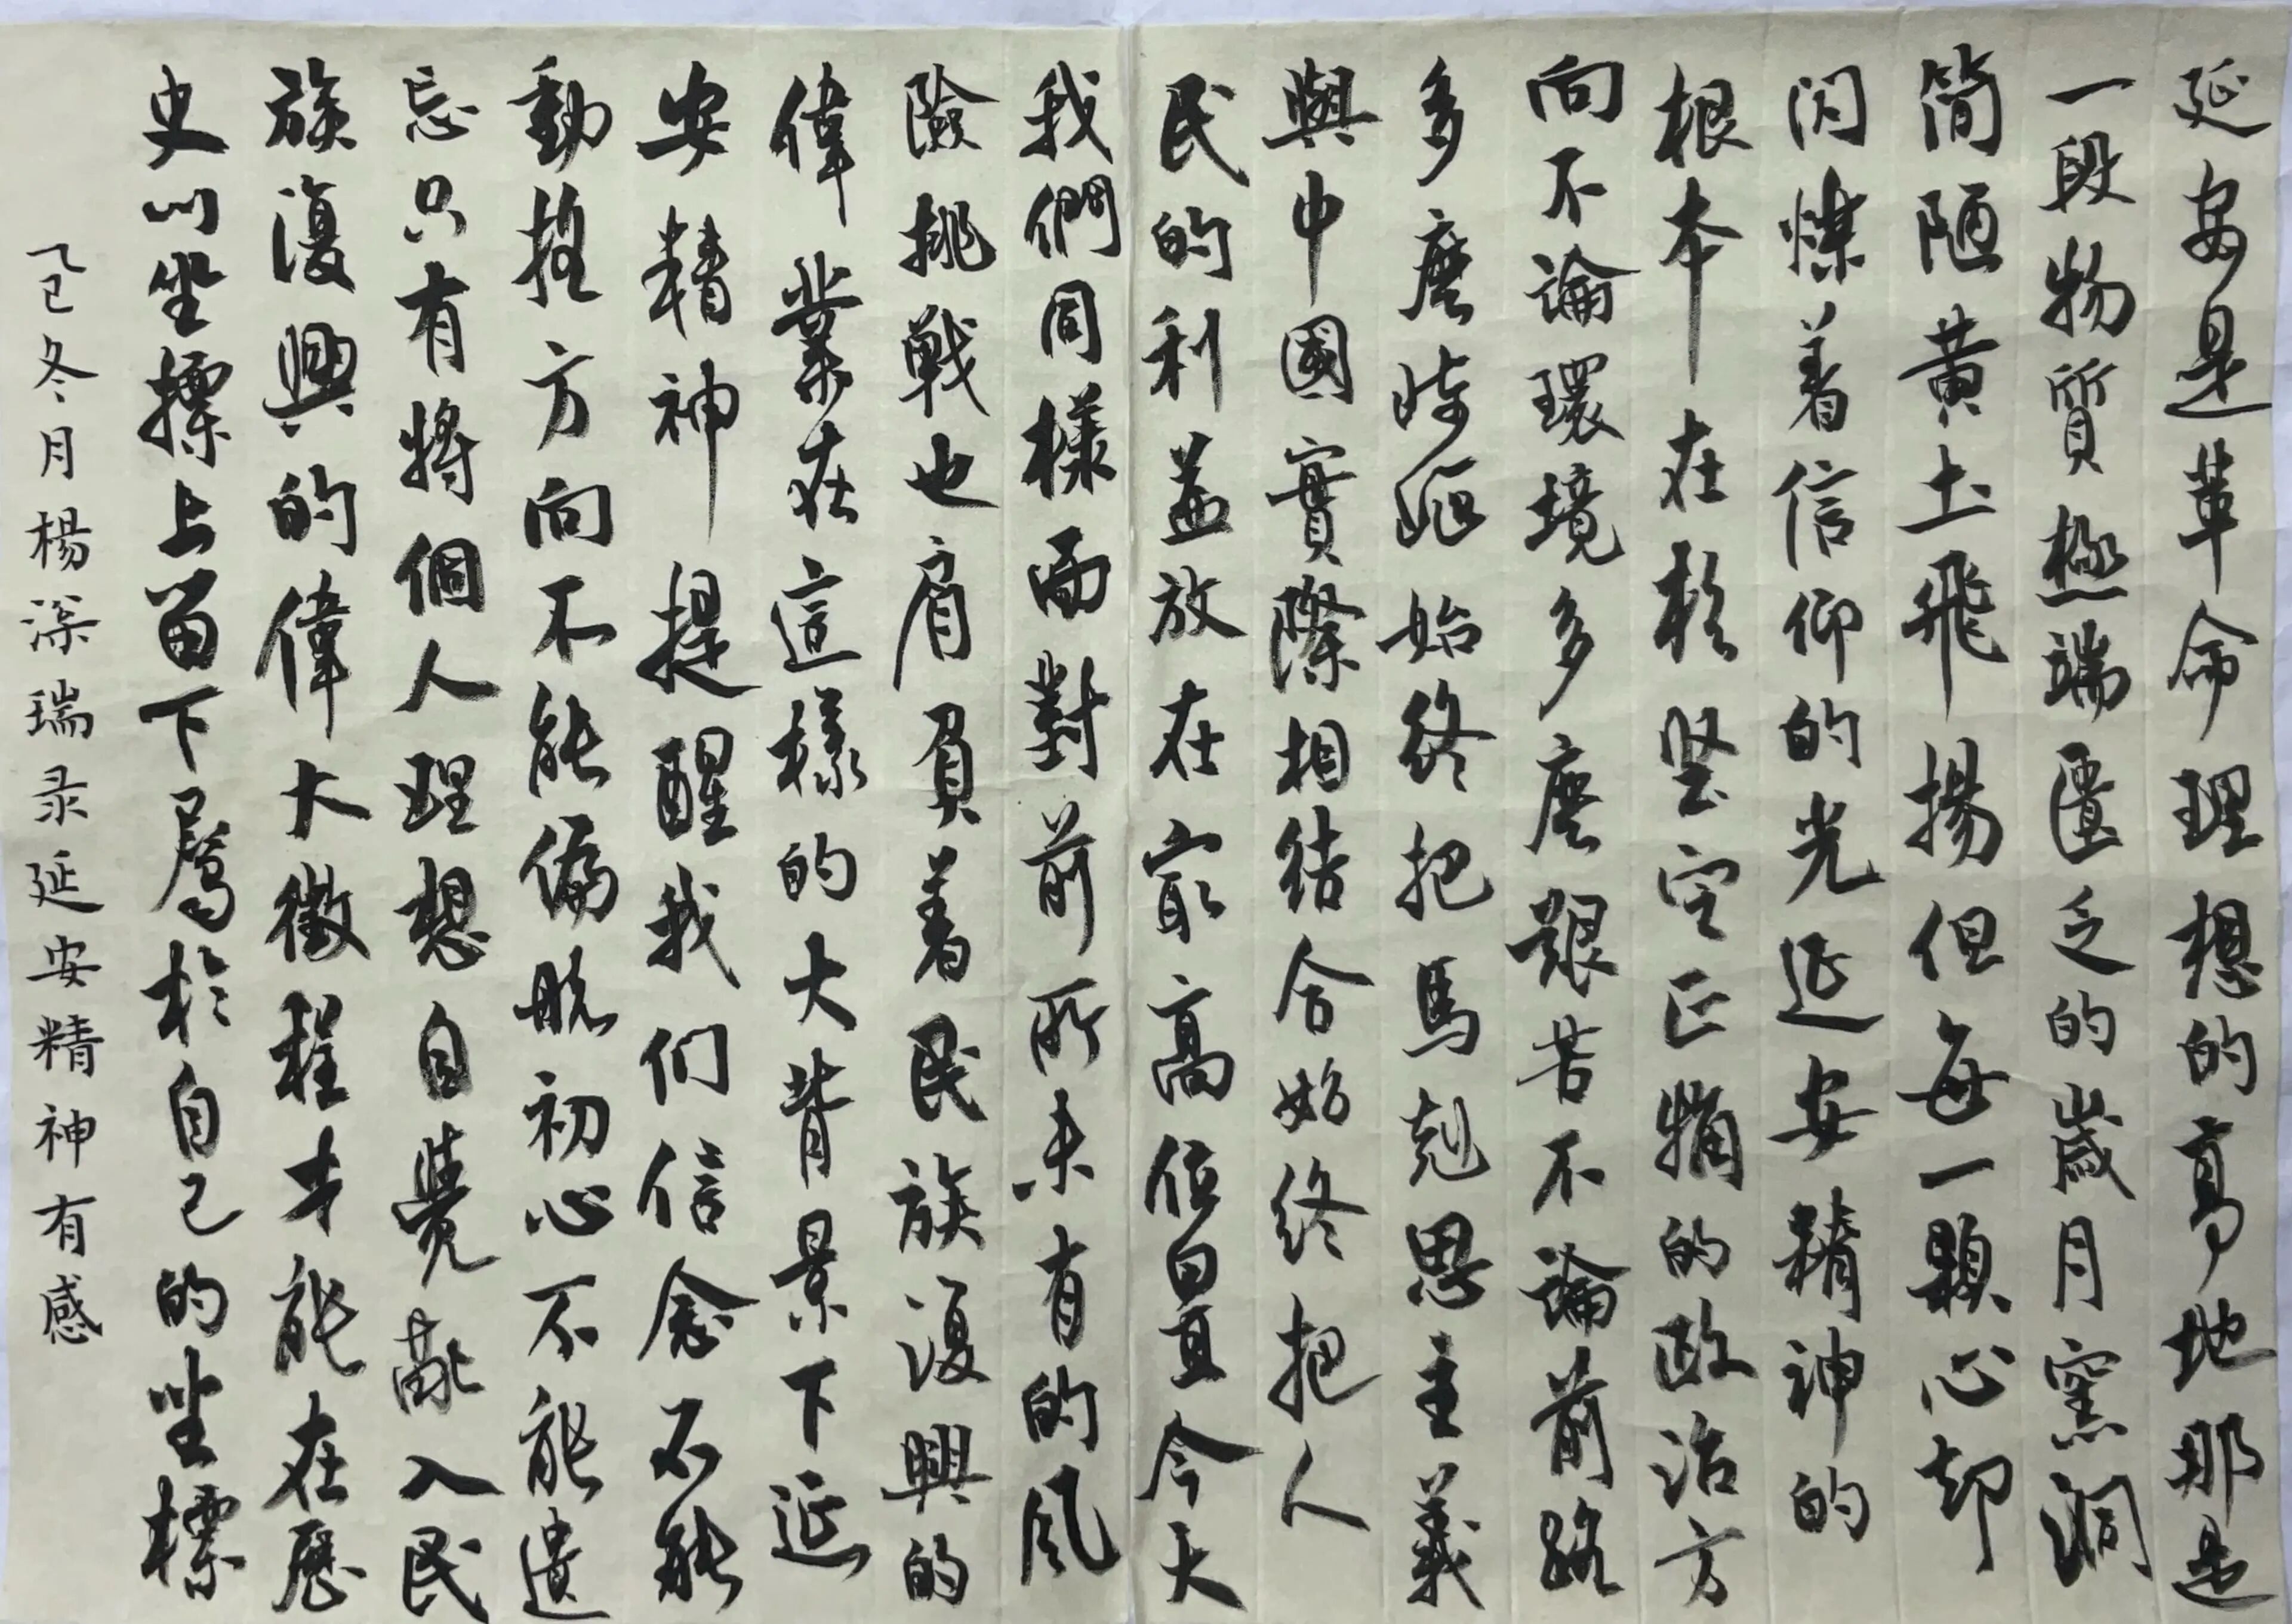 延安是革命理想的高地那是
一段物質極端匱乏的歲月窯洞
简陋黄土飛揚但每一顆心却
閃爍着信仰的光延安精神的
根本在於坚定正确的政治方
向不論環境多麼艱苦不論前路
多麼崎岖始终把馬克思主義
與中國實際相结合始终把人
民的利益放在最高位置今天
我們同樣面對前所未有的风
險挑戰也肩負着民族復興的
偉業在這樣的大背景下延
安精神提醒我们信念不能
動摇方向不能偏航初心不能遺
忘只有將個人理想自覺融入民
族復興的偉大徵程才能在歷
史坐標上留下屬於自己的坐標
乙巳冬月楊深瑞录延安精神有感